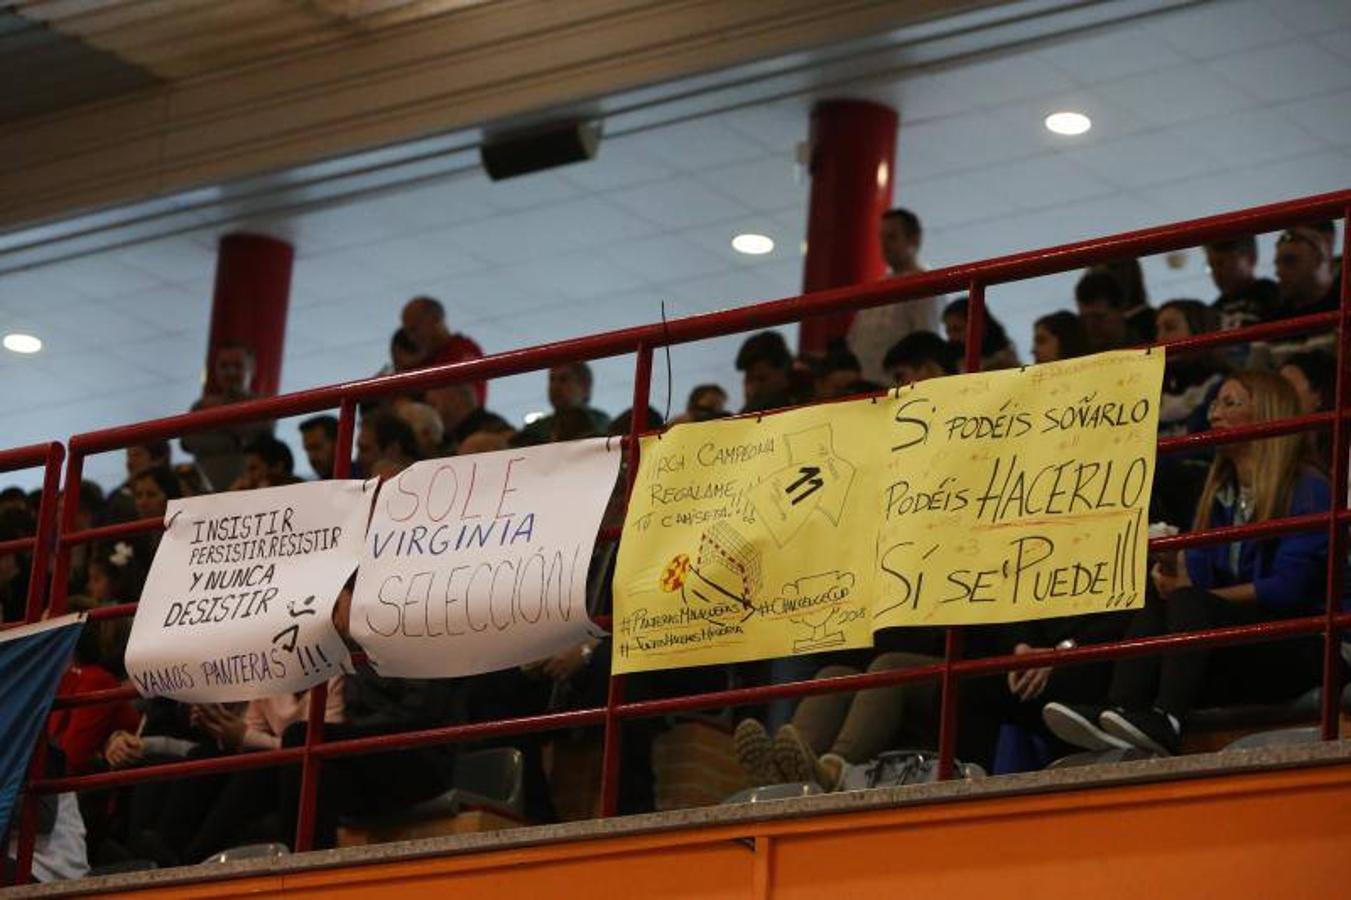 INSISTIR
PERSISTIR, RESISTIR
Y NUNCA
DESISTIR
VAMOS PANTERAS!!!
SOLE
VIRGINIA
SELECCIÓN
CAMPEONA
REGÁLAME
TÚ CAMISETA!!!
11
#PANTERASMALAGUEÑAS
#CHALLENGECUP
2018
#JUNTOSHACEMOSHISTORIA
SI PODÉIS SOÑARLO
PODÉIS HACERLO
SÍ SE PUEDE!!!